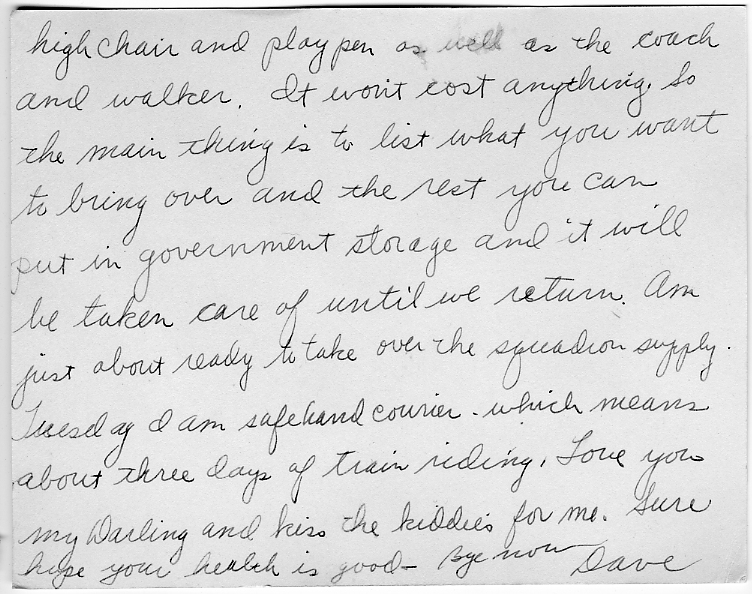 high chair and play pen as well as the coach
and walker. It won't cost anything. So
the main thing is to list what you want
to bring over and the rest you can
put in government storage and it will
be taken care of until we return. Am
just about ready to take over the squadron supply.
Tuesday I am safehand courier - which means
about three days of train riding. Love you
my Darling and kiss the kiddies for me. Sure
hope your health is good - Bye now Dave